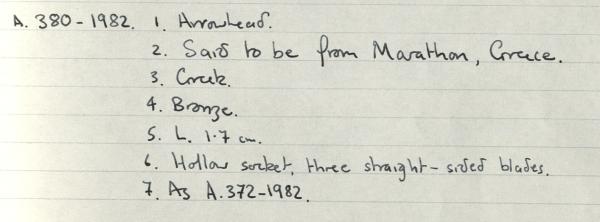 A. 380-1982. 1. Arrowhead.
2. Said to be from Marathon, Greece.
3. Greek.
4. Bronze.
5. L. 1.7 cm.
6. Hollow socket, three straight-sided blades.
7. As A.372-1982.